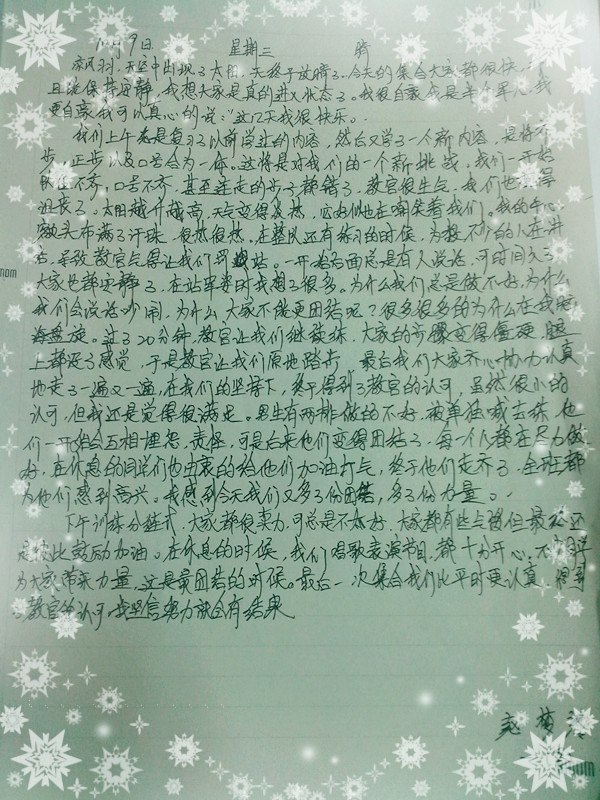 9日 星期三 晴
天空中出现了太阳，天终于放晴了。今天的集合大家都很快，
且能保持安静，我想大家是真的进入状态了。我很自豪我是半个军人，我
更自豪我可以真心的说：这几天我很快乐。
我们上午先是复习了以前学过的内容，然后又学了一个新内容，是将齐
步，正步以及口号合为一体。这将是对我们的一个新挑战。我们一开始
不齐，口号不齐，甚至连走的步子都错了，教官很生气，我们也
沮丧了。太阳越升越高，天气变得炎热，它好似也在嘲笑着我们。我的手心
额头布满了汗珠，很热很热。在整队还有练习的时候，为数不少的人在讲
话，导致教官气得让我们罚站。一开始后面总是有人说话，可时间久了
大家也都安静了，在站军姿时我想了很多。为什么我们总是做不好，为什么
我们会说话吵闹，为什么大家不能更团结呢？很多很多的为什么在我脑
海盘旋。过了20分钟，教官让我们继续练，大家的步履变得僵硬，腿
上都没了感觉，于是教官让我们原地踏步，最后我们大家齐心协力认真
地走了一遍又一遍，在我们的坚持下，终于得到了教官的认可，虽然很小的
认可，但我还是觉得很满足。男生有两排做的不好，被单独喊去练，他
们一开始会互相埋怨，责怪，可是后来他们变得团结了，每一个人都在尽力做
好，在休息的同学们也由衷的给他们加油打气，终于他们走齐了，全班都
为他们感到高兴。我感到今天我们又多了份团结，多了份力量。
下午训练分列式，大家都很卖力，可总是不太好，大家都有些气馁但最终还
是彼此鼓励加油。在休息的时候，我们唱歌表演节目，都十分开心，不
为大家带来力量，这是最团结的时候。最后一次集合我们比平时更认真，得到
了教官的认可，我坚信努力就会有结果。